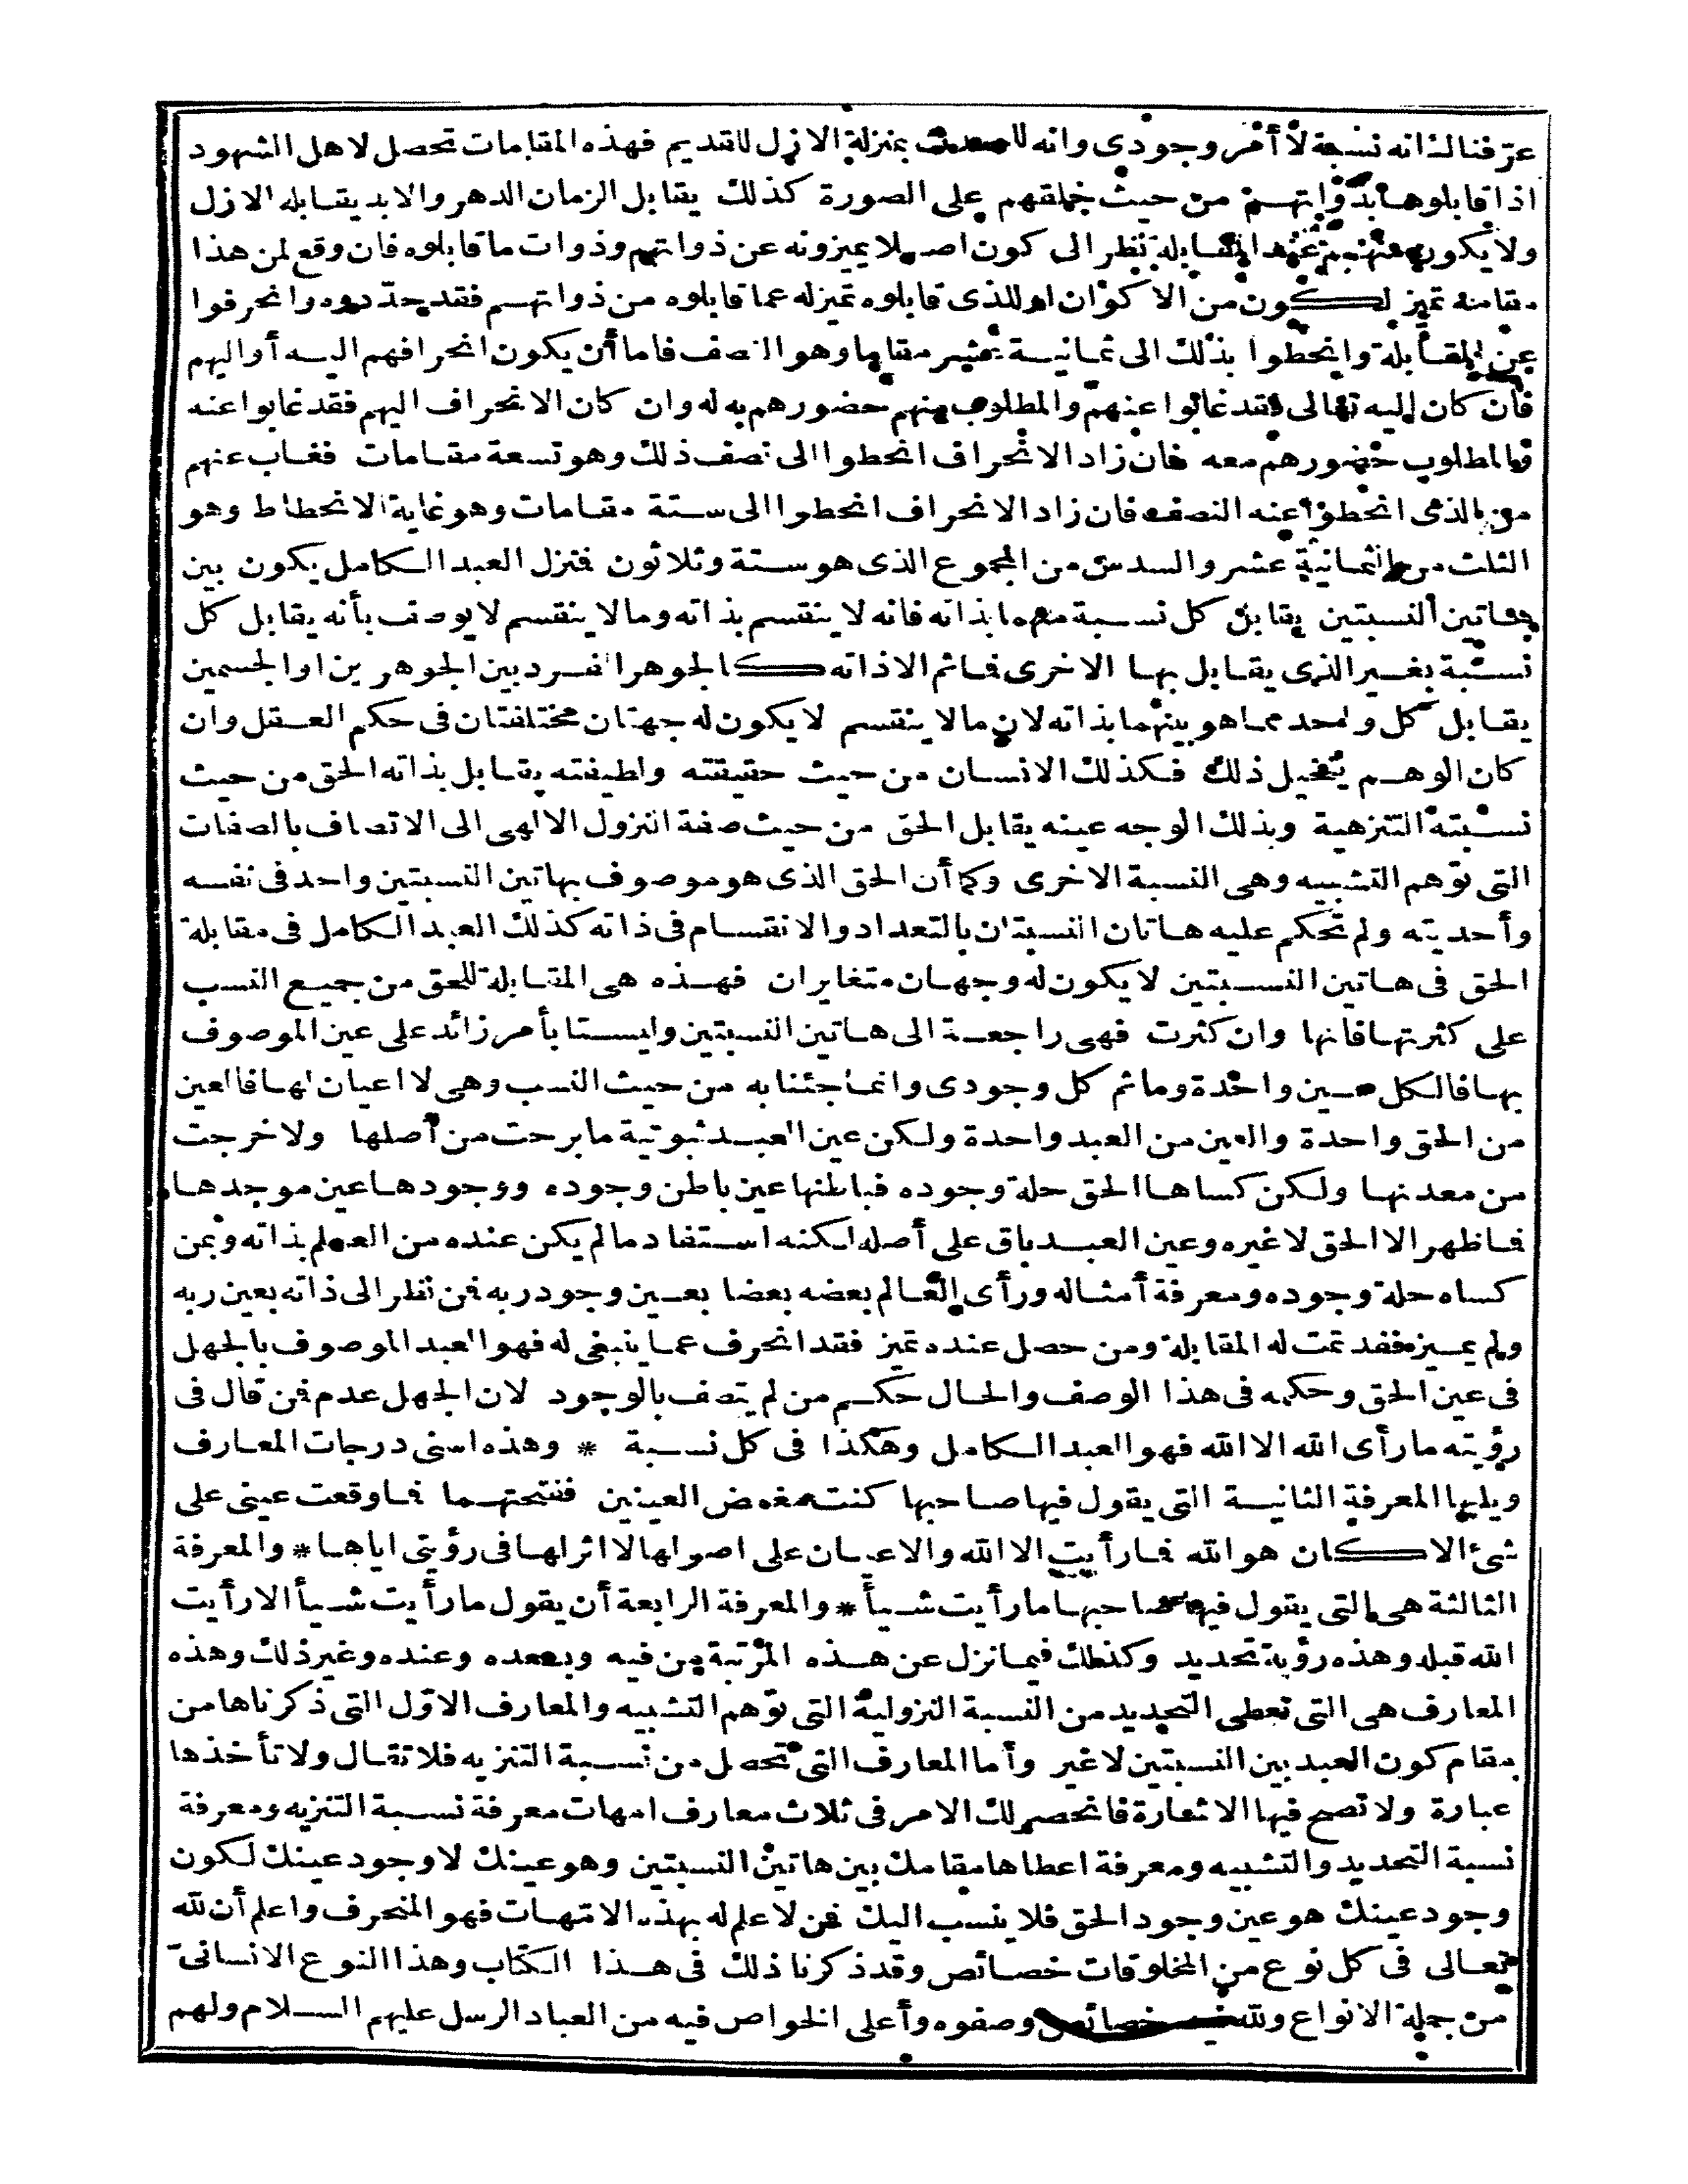 عرّفنالك انه نسبة لا أمر وجودى وانه للمحدث بمنزلة الازل للقديم فهذه المقامات تحصل لاهل الشهود
اذا قابلوها بذواتهم من حيث خلقهم على الصورة كذلك يقابل الزمان الدهر والابد يقابله الازل
ولا يكون منهم عند المقابلة نظر الى كون اصلا يميزونه عن ذواتهم وذوات ما قابلوه فان وقع لمن هذا
مقامه تميز لكون من الاكوان او للذى قابلوه تميزله عما قابلوه من ذواتهم فقد حدّدوه وانحرفوا
عن المقابلة وانحطوا بذلك الى ثمانية عشر مقاما وهو النصف فاما أن يكون انحرافهم اليه أو اليهم
فان كان اليه تعالى فقد غابوا عنهم والمطلوب منهم حضورهم به له وان كان الانحراف اليهم فقد غابوا عنه
والمطلوب حضورهم معه فان زاد الانحراف انحطوا الى نصف ذلك وهو تسعة مقامات فغاب عنهم
من الذى انحطوا عنه النصف فان زاد الانحراف انحطوا الى ستة مقامات وهو غاية الانحطاط وهو
الثلث من الثمانية عشر والسدس من المجموع الذى هو ستة وثلاثون فنزل العبد الكامل يكون بين
هاتين النسبتين يقابل كل نسبة منهما بذاته فانه لا ينقسم بذاته وما لا ينقسم لا يوصف بأنه يقابل كل
نسبة بغير الذى يقابل بها الاخرى فماثم الا ذاته كالجوهر الفرد بين الجوهرين او الجسمين
يقابل كل واحد مما هو بينهما بذاته لان ما لا ينقسم لا يكون له جهتان مختلفتان فى حكم العقل وان
كان الوهم يتخيل ذلك فكذلك الانسان من حيث حقيقته ولطيفته يقابل بذاته الحق من حيث
نسبته التنزهية وبذلك الوجه عينه يقابل الحق من حيث صفة النزول الالهى الى الاتصاف بالصفات
التى توهم التشبيه وهى النسبة الاخرى وكما أن الحق الذى هو موصوف بهاتين النسبتين واحد فى نفسه
وأحديته ولم تحكم عليه هاتان النسبتان بالتعداد والانقسام فى ذاته كذلك العبد الكامل فى مقابلة
الحق فى هاتين النسبتين لا يكون له وجهان متغايران فهذه هى المقابلة للحق من جميع النسب
على كثرتها فانها وان كثرت فهى راجعة الى هاتين النسبتين وليستا بأمر زائد على عين الموصوف
بها فالكل عين واحدة وماثم كل وجودى وانما جئنا به من حيث النسب وهى لا اعيان لها فالعين
من الحق واحدة والعين من العبد واحدة ولكن عين العبد ثبوتية ما برحت من أصلها ولا خرجت
من معدنها ولكن كساها الحق حلة وجوده فباطنها عين باطن وجوده ووجودها عين موجدها
فما ظهر الا الحق لا غيره وعين العبد باق على أصله لكنه استفاد ما لم يكن عنده من العلم بذاته وبمن
كساه حلة وجوده ومعرفة أمثاله ورأى العالم بعضه بعضا بعين وجود ربه فمن نظر الى ذاته بعين ربه
ولم يميز فقد تمت له المقابلة ومن حصل عنده تميز فقد انحرف عما ينبغى له فهو العبد الموصوف بالجهل
فى عين الحق وحكمه فى هذا الوصف والحال حكم من لم يتصف بالوجود لان الجهل عدم فمن قال فى
رؤيته ما رأى الله الا الله فهو العبد الكامل وهكذا فى كل نسبة * وهذه اسنى درجات المعارف
ويليها المعرفة الثانية التى يقول فيها صاحبها كنت مغمض العينين ففتحتهما فما وقعت عينى على
شئ الا كان هو الله فما رأيت الا الله والاعيان على اصولها لا اثر لها فى رؤيتى اياها * والمعرفة
الثالثة هى التى يقول فيها صاحبها ما رأيت شيأ * والمعرفة الرابعة أن يقول ما رأيت شيأ الا رأيت
الله قبله وهذه رؤية تحديد وكذلك فيما نزل عن هذه المرتبة من فيه وبعده وعنده وغير ذلك وهذه
المعارف هى التى تعطى التحديد من النسبة النزولية التى توهم التشبيه والمعارف الاول التى ذكرناها من
مقام كون العبد بين النسبتين لا غير وأما المعارف التى تحصل من نسبة التنزيه فلا تقال ولا تأخذها
عبارة ولا تصح فيها الاشارة فانحصر لك الامر فى ثلاث معارف امهات معرفة نسبة التنزيه ومعرفة
نسبة التحديد والتشبيه ومعرفة اعطاها مقامك بين هاتين النسبتين وهو عينك لا وجود عينك لكون
وجود عينك هو عين وجود الحق فلا ينسب اليك فمن لا علم له بهذه الامهات فهو المنحرف واعلم أن لله
تعالى فى كل نوع من المخلوقات خصائص وقد ذكرنا ذلك فى هذا الكتاب وهذا النوع الانسانى
من جملة الانواع ولله فيه خصائص وصفوه وأعلى الخواص فيه من العباد الرسل عليهم السلام ولهم